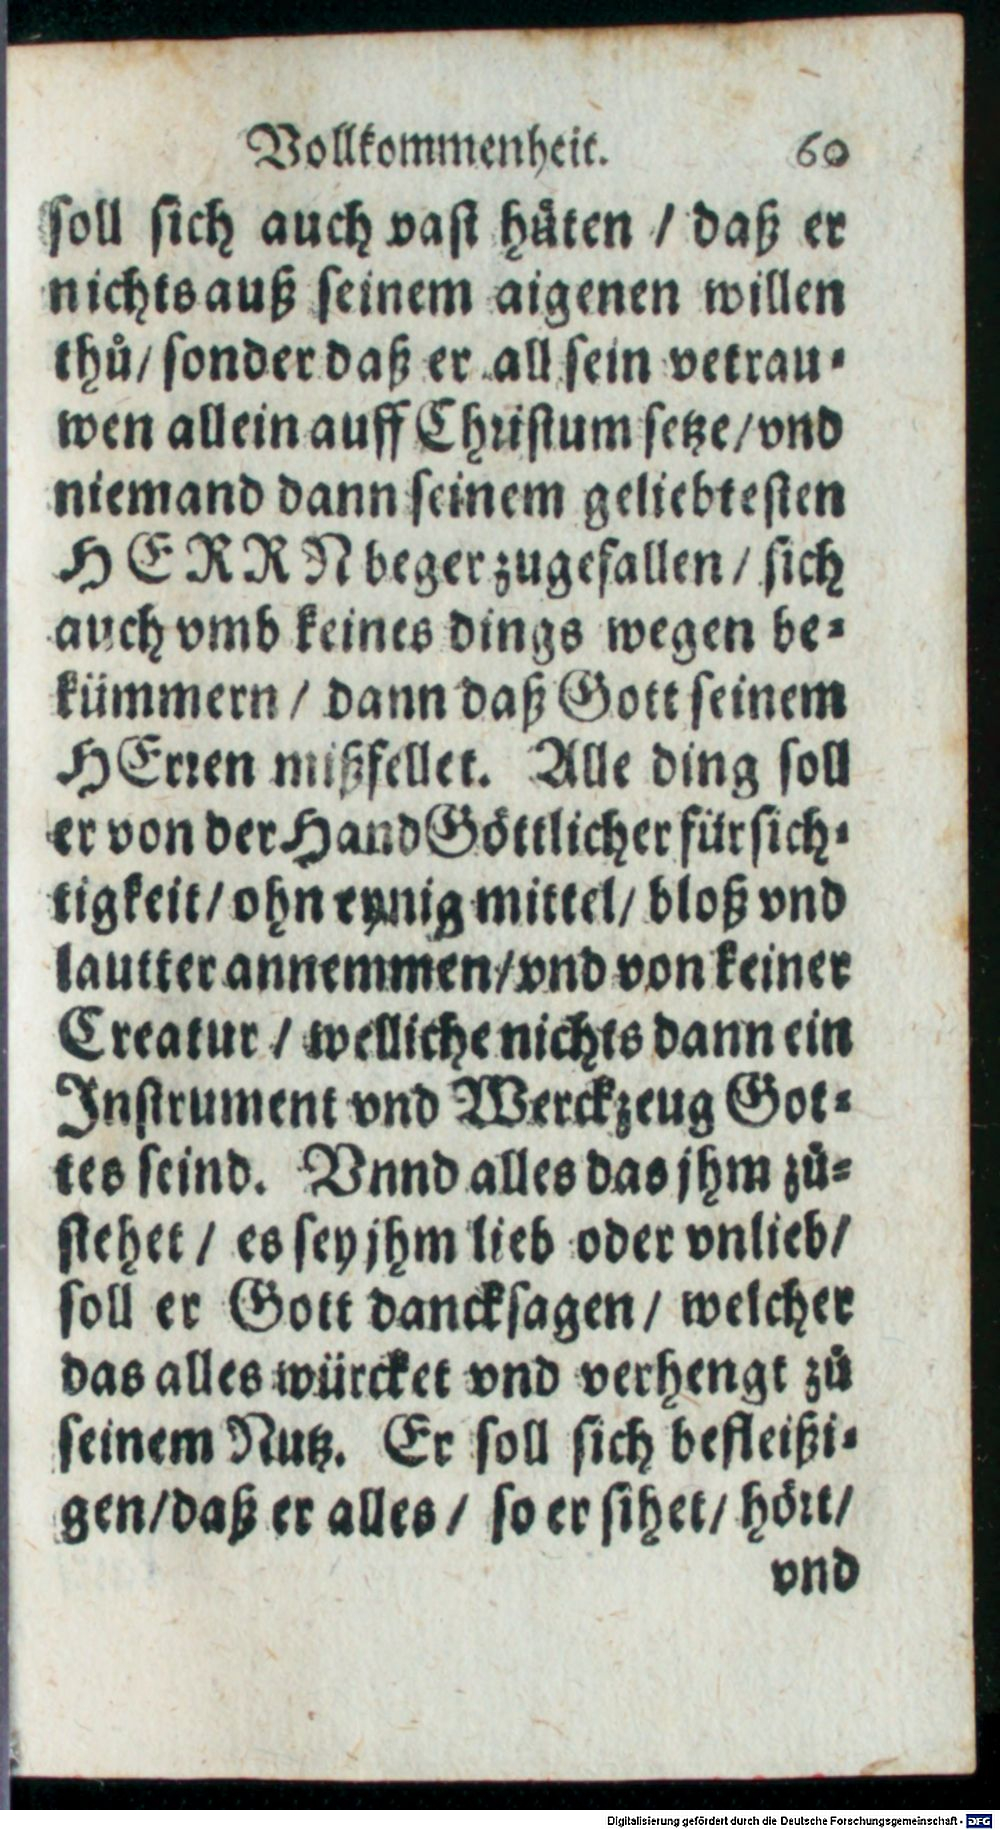 Vollkommenheit. 60
soll sich auch vast hüten / daß er
nichts auß seinem aigenen willen
thů / sonder daß er all sein vetrau-
wen allein auff Christum setze / vnd
niemand dann seinem geliebtesten
HERRN beger zugefallen / sich
auch vmb keines dings wegen be-
kümmern / dann daß Gott seinem
HErren mißfellet. Alle ding soll
er von der Hand Göttlicher fürsich-
tigkeit / ohn eynig mittel / bloß vnd
lautter annemmen / vnd von keiner
Creatur / welliche nichts dann ein
Instrument vnd Werckzeug Got-
tes seind. Vnnd alles das jhm zů-
stehet / es sey jhm lieb oder vnlieb /
soll er Gott dancksagen / welcher
das alles würcket vnd verhengt zů
seinem Nutz. Er soll sich befleißi-
gen / daß er alles / so er sihet / hört /
vnd
Digitalisierung gefördert durch die Deutsche Forschungsgemeinschaft - DFG